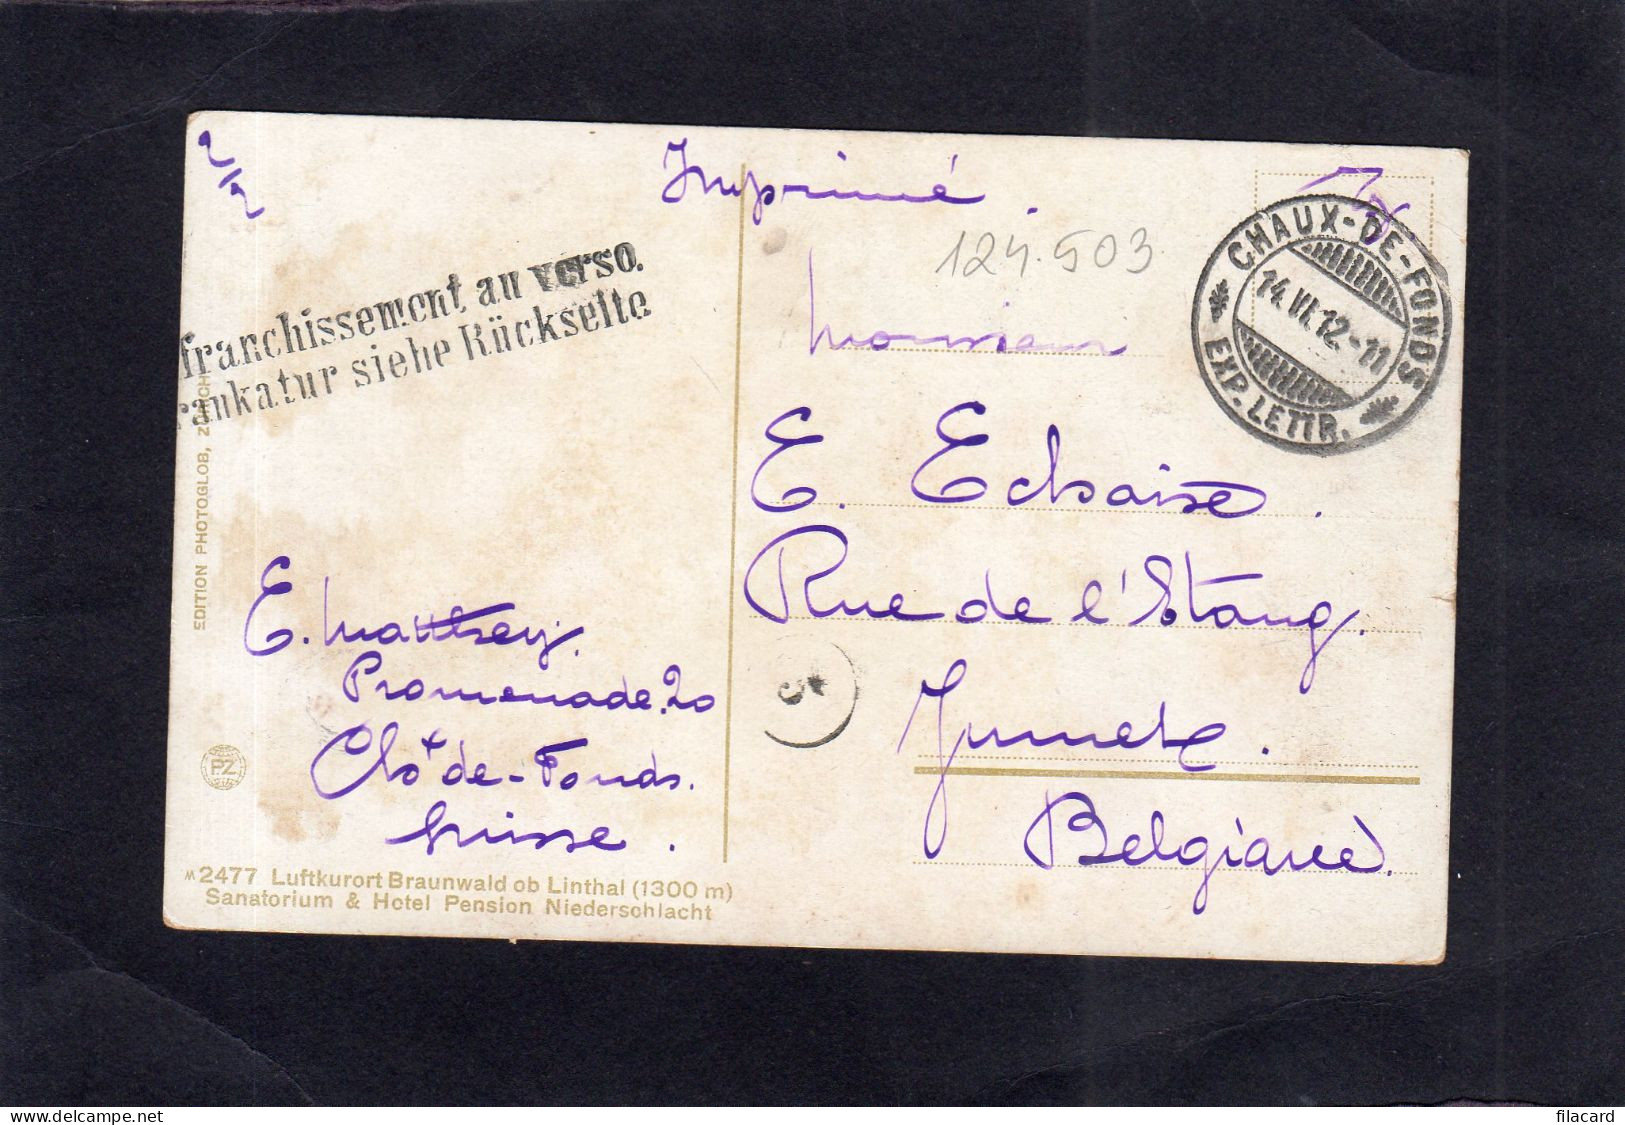 2/2
Imprimé.
124.503
CHAUX-DE-FONDS
14.VI.12.-11
EXP. LETTR.
franchissement au verso.
rankatur siehe Rückseite
Monsieur
E. Echaise.
Rue de l'Etang.
Jumet.
Belgique.
E. Matthey.
Promenade.20
Chx de-Fonds.
Suisse.
EDITION PHOTOGLOB, ZÜRICH
PZ
2477 Luftkurort Braunwald ob Linthal (1300 m)
Sanatorium & Hotel Pension Niederschlacht
filacard